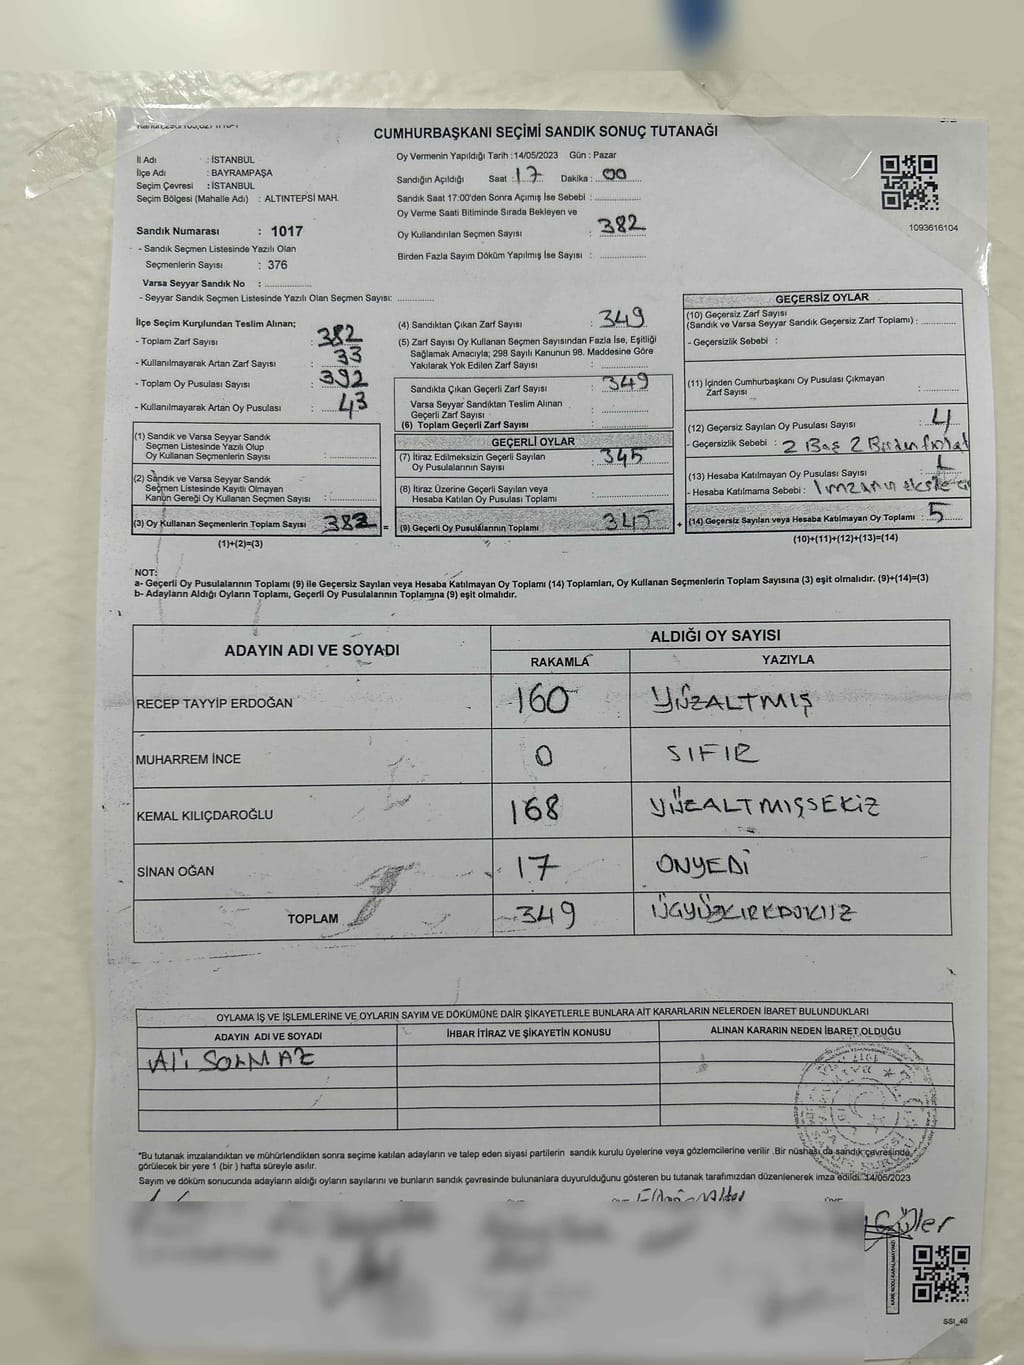 CUMHURBAŞKANI SEÇİMİ SANDIK SONUÇ TUTANAĞI
İl Adı : İSTANBUL
İlçe Adı : BAYRAMPAŞA
Seçim Çevresi : İSTANBUL
Seçim Bölgesi (Mahalle Adı) : ALTINTEPSİ MAH.
Sandık Numarası : 1017
- Sandık Seçmen Listesinde Yazılı Olan
Seçmenlerin Sayısı : 376
Varsa Seyyar Sandık No :
- Seyyar Sandık Seçmen Listesinde Yazılı Olan Seçmen Sayısı:
Oy Vermenin Yapıldığı Tarih : 14/05/2023 Gün : Pazar
Sandığın Açıldığı Saat : 17 Dakika : 00
Sandık Saat 17:00'den Sonra Açımış İse Sebebi :
Oy Verme Saati Bitiminde Sırada Bekleyen ve
Oy Kullandırılan Seçmen Sayısı : 382
Birden Fazla Sayım Döküm Yapılmış İse Sayısı :
1093616104
İlçe Seçim Kurulundan Teslim Alınan;
- Toplam Zarf Sayısı : 382
- Kullanılmayarak Artan Zarf Sayısı : 33
- Toplam Oy Pusulası Sayısı : 392
- Kullanılmayarak Artan Oy Pusulası : 43
(1) Sandık ve Varsa Seyyar Sandık
Seçmen Listesinde Yazılı Olup
Oy Kullanan Seçmenlerin Sayısı :
(2) Sandık ve Varsa Seyyar Sandık
Seçmen Listesinde Kayıtlı Olmayan
Kanun Gereği Oy Kullanan Seçmen Sayısı :
(3) Oy Kullanan Seçmenlerin Toplam Sayısı 382 =
(1)+(2)=(3)
(4) Sandıktan Çıkan Zarf Sayısı : 349
(5) Zarf Sayısı Oy Kullanan Seçmen Sayısından Fazla İse, Eşitliği
Sağlamak Amacıyla; 298 Sayılı Kanunun 98. Maddesine Göre
Yakılarak Yok Edilen Zarf Sayısı :
Sandıkta Çıkan Geçerli Zarf Sayısı : 349
Varsa Seyyar Sandıktan Teslim Alınan
Geçerli Zarf Sayısı :
(6) Toplam Geçerli Zarf Sayısı :
GEÇERLİ OYLAR
(7) İtiraz Edilmeksizin Geçerli Sayılan
Oy Pusulalarının Sayısı : 345
(8) İtiraz Üzerine Geçerli Sayılan veya
Hesaba Katılan Oy Pusulası Toplamı :
(9) Geçerli Oy Pusulalarının Toplamı 345 +
GEÇERSİZ OYLAR
(10) Geçersiz Zarf Sayısı
(Sandık ve Varsa Seyyar Sandık Geçersiz Zarf Toplamı) :
- Geçersizlik Sebebi :
(11) İçinden Cumhurbaşkanı Oy Pusulası Çıkmayan
Zarf Sayısı :
(12) Geçersiz Sayılan Oy Pusulası Sayısı : 4
- Geçersizlik Sebebi : 2 Boş 2 Birden fazla
(13) Hesaba Katılmayan Oy Pusulası Sayısı : 1
- Hesaba Katılmama Sebebi : 1 imzanın
(14) Geçersiz Sayılan veya Hesaba Katılmayan Oy Toplamı : 5
(10)+(11)+(12)+(13)=(14)
NOT:
a- Geçerli Oy Pusulalarının Toplamı (9) ile Geçersiz Sayılan veya Hesaba Katılmayan Oy Toplamı (14) Toplamları, Oy Kullanan Seçmenlerin Toplam Sayısına (3) eşit olmalıdır. (9)+(14)=(3)
b- Adayların Aldığı Oyların Toplamı, Geçerli Oy Pusulalarının Toplamına (9) eşit olmalıdır.
ADAYIN ADI VE SOYADI ALDIĞI OY SAYISI
RAKAMLA YAZIYLA
RECEP TAYYİP ERDOĞAN 160 YÜZALTMIŞ
MUHARREM İNCE 0 SIFIR
KEMAL KILIÇDAROĞLU 168 YÜZALTMIŞSEKİZ
SİNAN OĞAN 17 ONYEDİ
TOPLAM 349 ÜÇYÜZKIRKDOKUZ
OYLAMA İŞ VE İŞLEMLERİNE VE OYLARIN SAYIM VE DÖKÜMÜNE DAİR ŞİKAYETLERLE BUNLARA AİT KARARLARIN NELERDEN İBARET BULUNDUKLARI
ADAYIN ADI VE SOYADI İHBAR İTİRAZ VE ŞİKAYETİN KONUSU ALINAN KARARIN NEDEN İBARET OLDUĞU
ALİ SOLMAZ
*Bu tutanak imzalandıktan ve mühürlendikten sonra seçime katılan adayların ve talep eden siyasi partilerin sandık kurulu üyelerine veya gözlemcilerine verilir .Bir nüshası da sandık çevresinde,
görülecek bir yere 1 (bir ) hafta süreyle asılır.
Sayım ve döküm sonucunda adayların aldığı oyların sayılarını ve bunların sandık çevresinde bulunanlara duyurulduğunu gösteren bu tutanak tarafımızdan düzenlenerek imza edildi. 14/05/2023
Güler
SSI_40